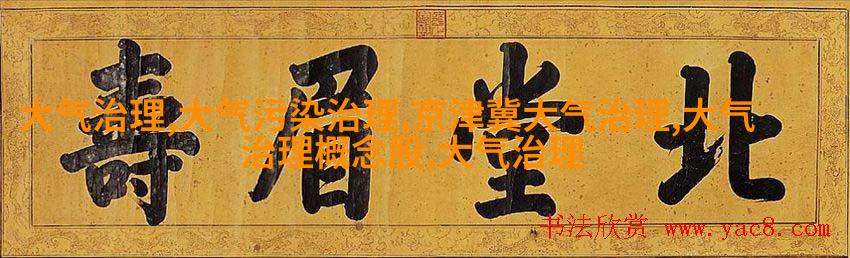 北堂眉壽
大气治理,大气污染治理,京津冀大气治理,大气
治理概念股,大气治理
书法欣赏 www.yac8.com